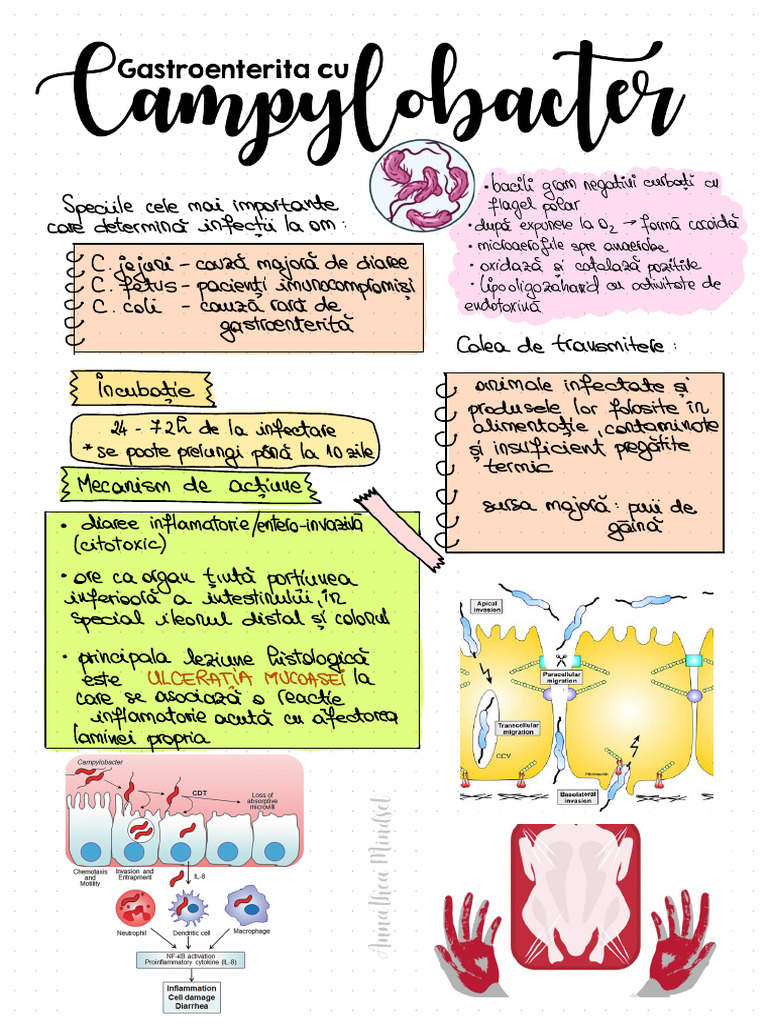 Gastroenterita cu
Campylobacter
Speciile cele mai importante
care determină infecții la om:
C. jejuni – cauză majoră de diaree
C. fetus – pacienți imunocompromiși
C. coli – cauză rară de
gastroenterită
• bacili gram negativi curbați cu
flagel polar
• după expunere la O₂ → formă cocoidă
• microaerofile spre anaerobe
• oxidază și catalază pozitive
• lipooligozaharid cu activitate de
endotoxină
Calea de transmitere:
animale infectate și
produsele lor folosite în
alimentație, contaminate
și insuficient pregătite
termic
sursa majoră: puii de
găină
Incubație
24 - 72h de la infectare
* se poate prelungi până la 10 zile
Mecanism de acțiune
• diaree inflamatorie/entero-invazivă
(citotoxic)
• are ca organ țintă porțiunea
inferioară a intestinului, în
special ileonul distal și colonul
• principala leziune histologică
este ULCERAȚIA MUCOASEI la
care se asociază o reacție
inflamatorie acută cu afectarea
laminei propria
Apical
invasion
Paracellular
migration
Transcellular
migration
CCV
Fibronectin
Basolateral
invasion
Campylobacter
CDT
Loss of
absorptive
microvilli
Chemotaxis
and
Motility
Invasion and
Entrapment
IL-8
Neutrophil
Dendritic cell
Macrophage
NF-κB activation
Proinflammatory cytokine (IL-8)
Inflammation
Cell damage
Diarrhea
Annathea Mindset